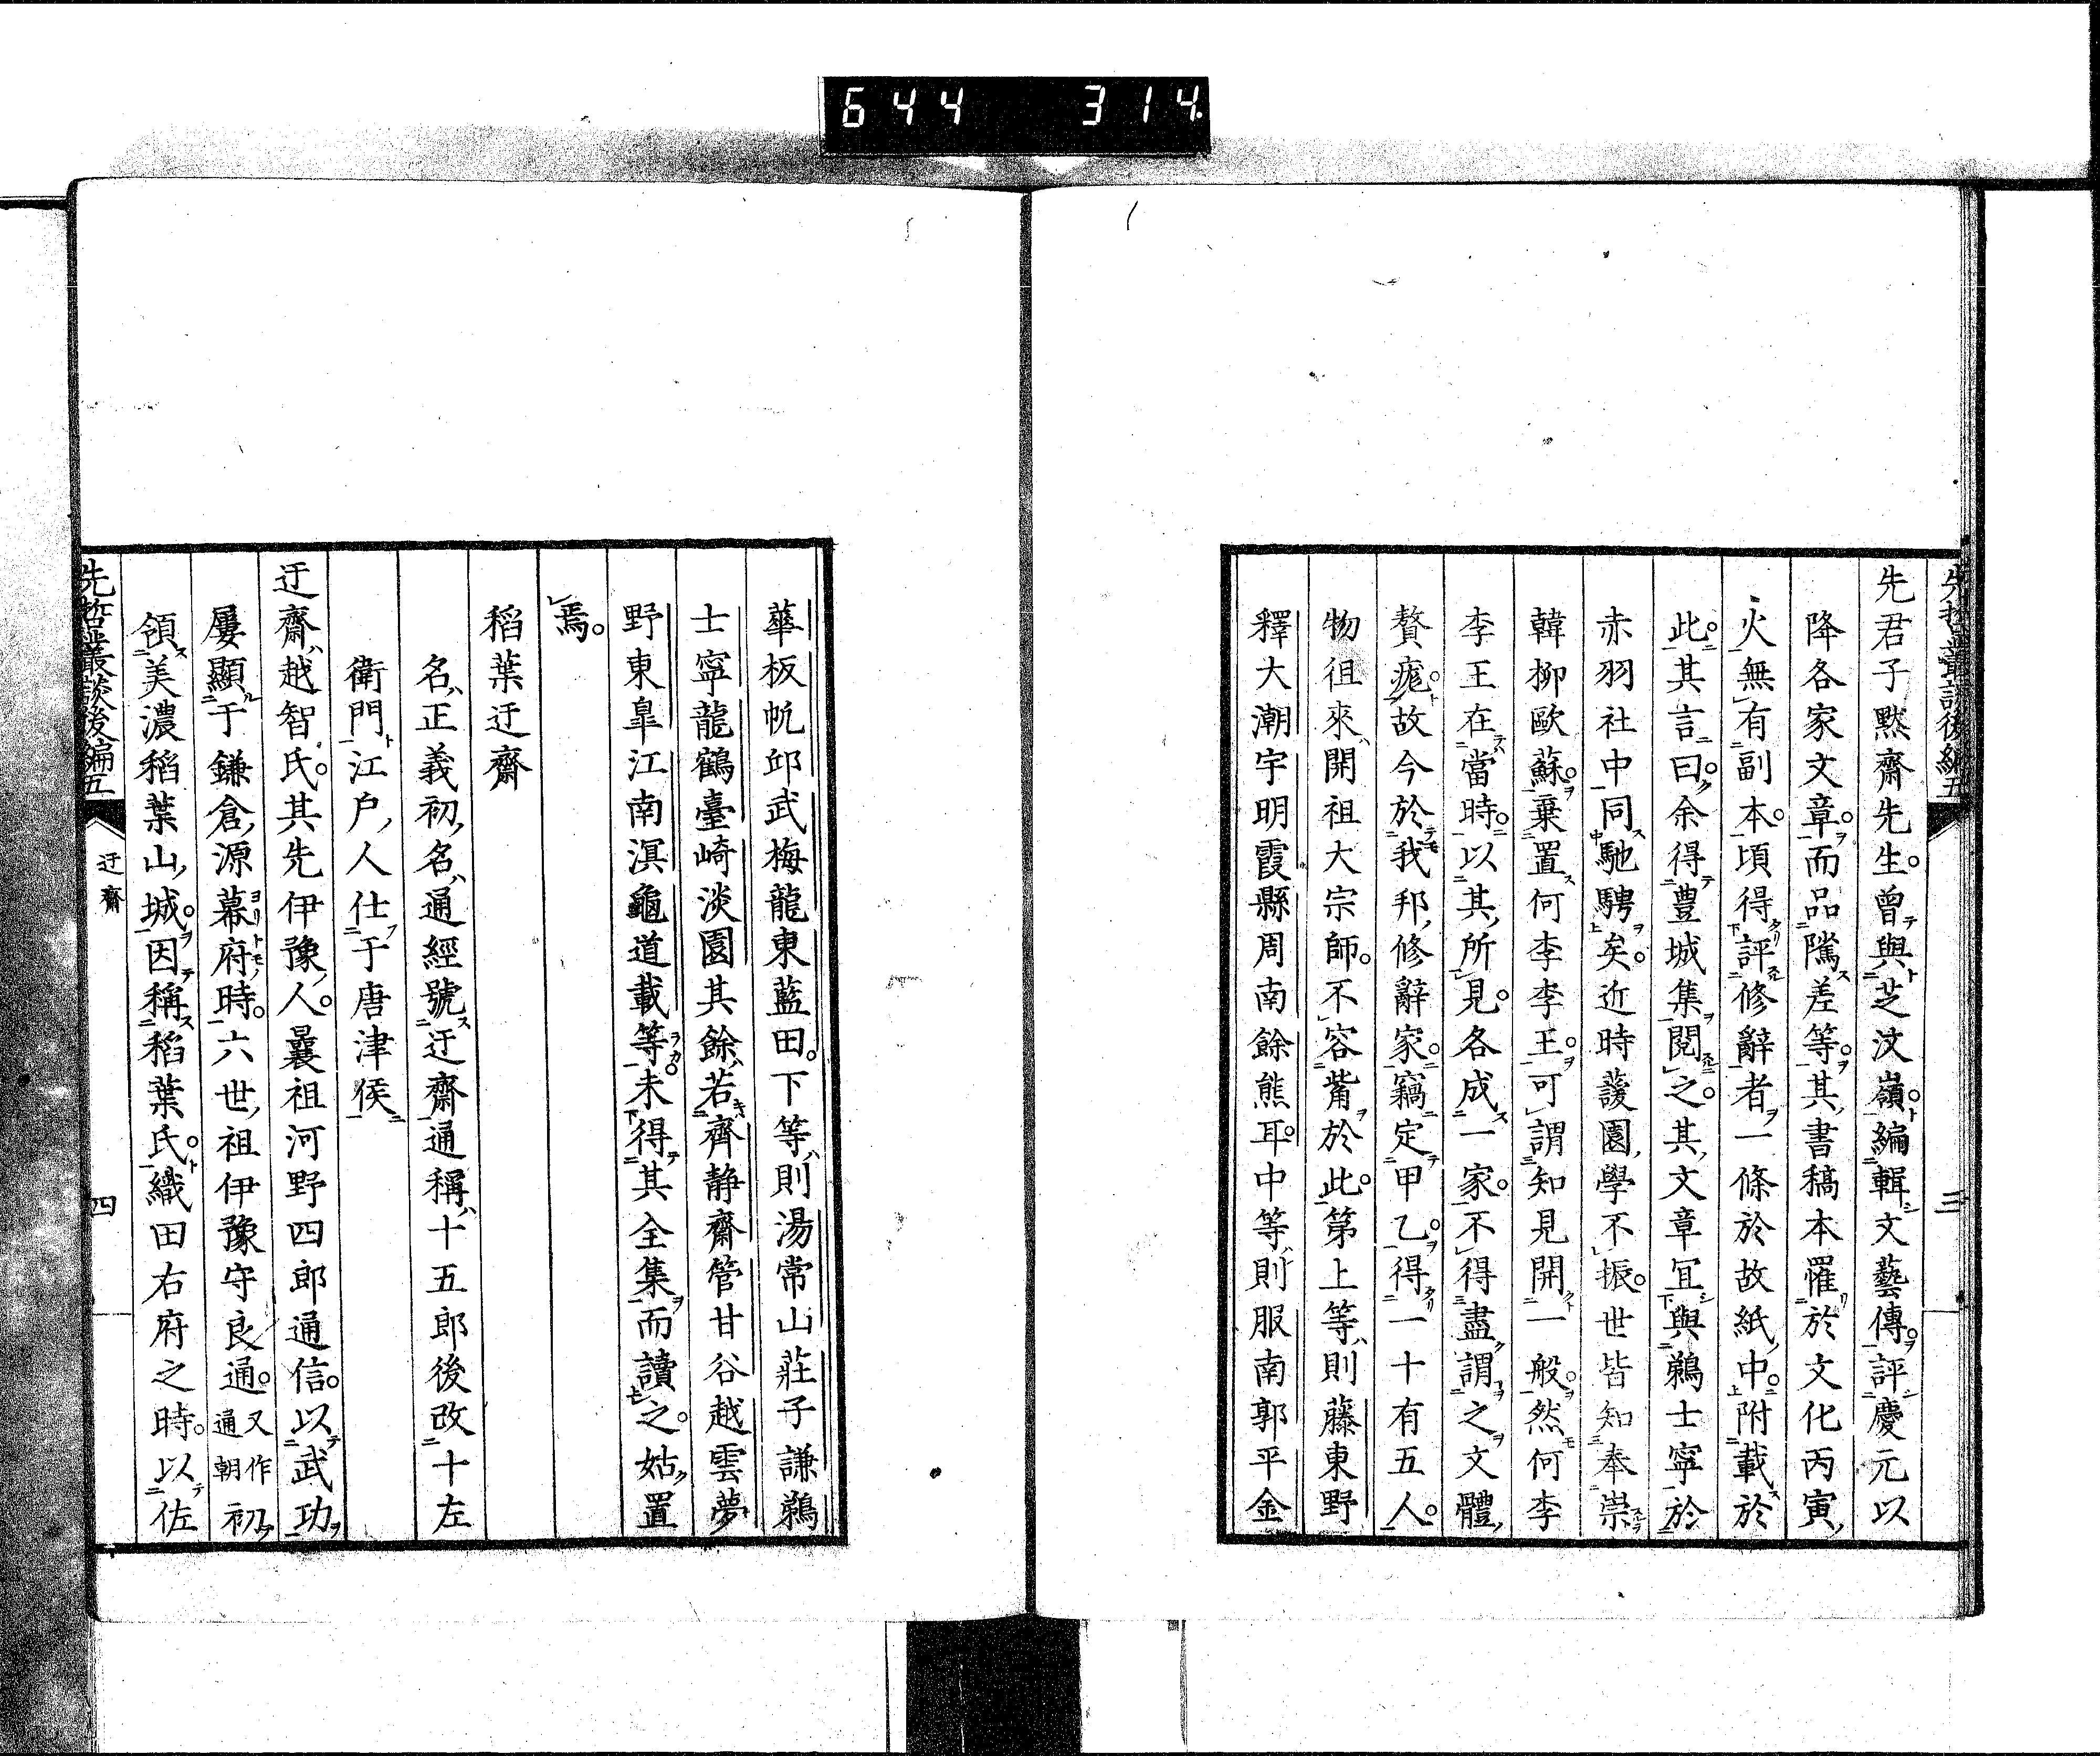 644 314
先哲叢談後編五
三
先君子默齋先生。曾與芝汶嶺。編輯文藝傳。評慶元以
降各家文章。而品隲差等。其書稿本罹於文化丙寅
火無有副本。頃得評修辭者一條於故紙中。附載於
此。其言曰。余得豊城集閱之。其文章宜與鵜士寧於
赤羽社中同馳騁矣。近時蘐園學不振。世皆知奉崇
韓柳歐蘇。棄置何李李王。可謂知見開一般。然何李
李王在當時。以其所見。各成一家。不得盡謂之文體
贅疣。故今於我邦修辭家。竊定甲乙。得一十有五人。
物徂來開祖大宗師。不容觜於此。第上等則藤東野
釋大潮宇明霞縣周南餘熊耳。中等則服南郭平金
華板帆邱武梅龍東藍田。下等則湯常山莊子謙鵜
士寧龍鶴臺崎淡園其餘若齊靜齋管甘谷越雲夢
野東皐江南溟龜道載等。未得其全集而讀之。姑置
焉。
稻葉迂齋
名正義初名通經號迂齋通稱十五郎後改十左
衛門江戶人仕于唐津侯
迂齋越智氏。其先伊豫人。曩祖河野四郎通信。以武功
屢顯于鎌倉源幕府時。六世祖伊豫守良通。又作通朝初
領美濃稻葉山城。因稱稻葉氏。織田右府之時。以佐
先哲叢談後編五
迂齋
四